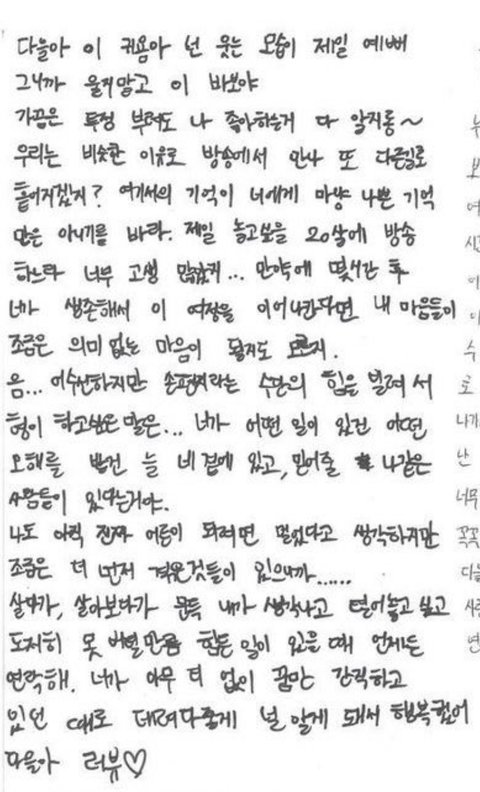 다을아 이 귀욤아 넌 웃는 모습이 제일 예뻐
그니까 울지말고 이 바보야
가끔은 투정 부려도 나 좋아하는거 다 알지롱~
우리는 비슷한 이유로 방송에서 만나 또 다른길로
흩어지겠지? 여기서의 기억이 너에게 마냥 나쁜 기억
만은 아니기를 바라. 제일 놀고싶을 20살에 방송
하느라 너무 고생 많았귀... 만약에 몇시간 후
네가 생존해서 이 여정을 이어나간다면 내 마음들이
조금은 의미 없는 마음이 될지도 모르지.
음... 어수선하지만 손편지라는 수단의 힘을 빌려서
형이 하고싶은 말은... 네가 어떤 일이 있건 어떤
오해를 받건 늘 네 곁에 있고, 믿어줄 나같은
사람들이 있다는거야.
나도 아직 진짜 어른이 되려면 멀었다고 생각하지만
조금은 더 먼저 겪은것들이 있으니까......
살다가, 살아보다가 문득 내가 생각나고 털어놓고 싶고
도저히 못 버틸만큼 힘든 일이 있을 때 언제든
연락해. 네가 아무 더 없이 꿈만 간직하고
있던 때로 데려다줄게 널 알게 돼서 행복했어
다을아 러뷰♡